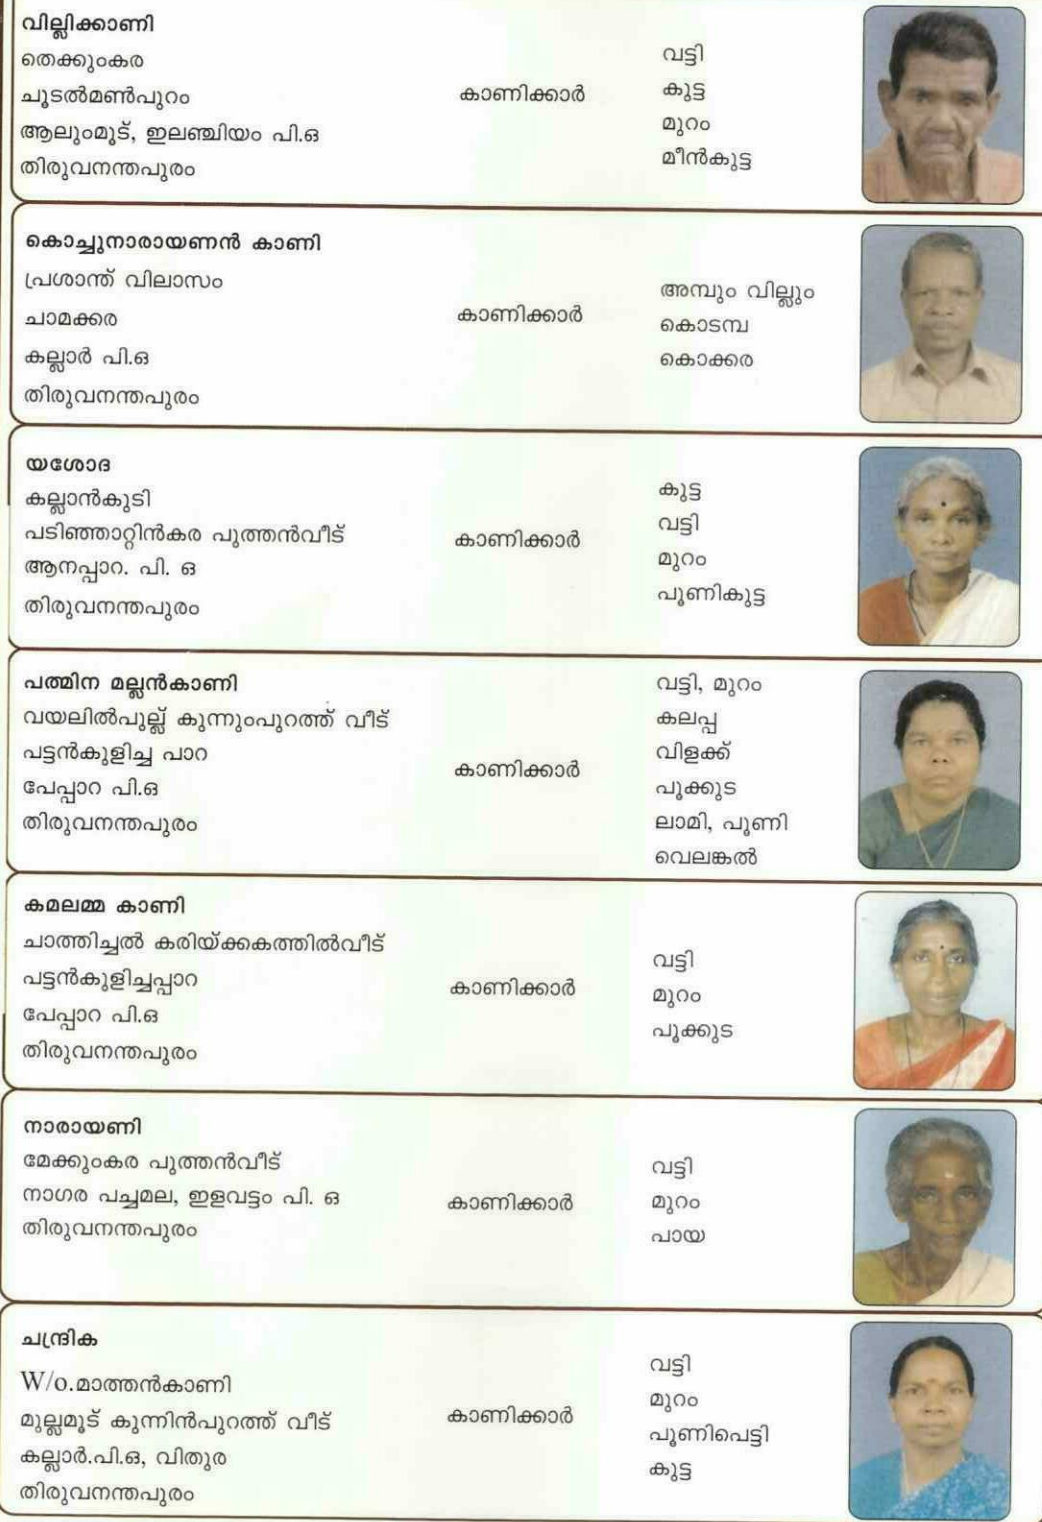 വില്ലിക്കാണി
തെക്കുംകര
ചൂടൽമൺപുറം
ആലുംമൂട്, ഇലഞ്ചിയം പി.ഒ
തിരുവനന്തപുരം
കാണിക്കാർ
വട്ടി
കുട്ട
മുറം
മീൻകുട്ട
കൊച്ചുനാരായണൻ കാണി
പ്രശാന്ത് വിലാസം
ചാമക്കര
കല്ലാർ പി.ഒ
തിരുവനന്തപുരം
കാണിക്കാർ
അമ്പും വില്ലും
കൊടമ്പ
കൊക്കര
യശോദ
കല്ലാൻകുടി
പടിഞ്ഞാറ്റിൻകര പുത്തൻവീട്
ആനപ്പാറ. പി. ഒ
തിരുവനന്തപുരം
കാണിക്കാർ
കുട്ട
വട്ടി
മുറം
പൂണികുട്ട
പത്മിന മല്ലൻകാണി
വയലിൽപുല്ല് കുന്നുംപുറത്ത് വീട്
പട്ടൻകുളിച്ച പാറ
പേപ്പാറ പി.ഒ
തിരുവനന്തപുരം
കാണിക്കാർ
വട്ടി, മുറം
കലപ്പ
വിളക്ക്
പൂക്കുട
ലാമി, പൂണി
വെലങ്കൽ
കമലമ്മ കാണി
ചാത്തിച്ചൽ കരിയ്ക്കകത്തിൽവീട്
പട്ടൻകുളിച്ചപ്പാറ
പേപ്പാറ പി.ഒ
തിരുവനന്തപുരം
കാണിക്കാർ
വട്ടി
മുറം
പൂക്കുട
നാരായണി
മേക്കുംകര പുത്തൻവീട്
നാഗര പച്ചമല, ഇളവട്ടം പി. ഒ
തിരുവനന്തപുരം
കാണിക്കാർ
വട്ടി
മുറം
പായ
ചന്ദ്രിക
W/o.മാത്തൻകാണി
മുല്ലമൂട് കുന്നിൻപുറത്ത് വീട്
കല്ലാർ.പി.ഒ, വിതുര
തിരുവനന്തപുരം
കാണിക്കാർ
വട്ടി
മുറം
പൂണിപെട്ടി
കുട്ട